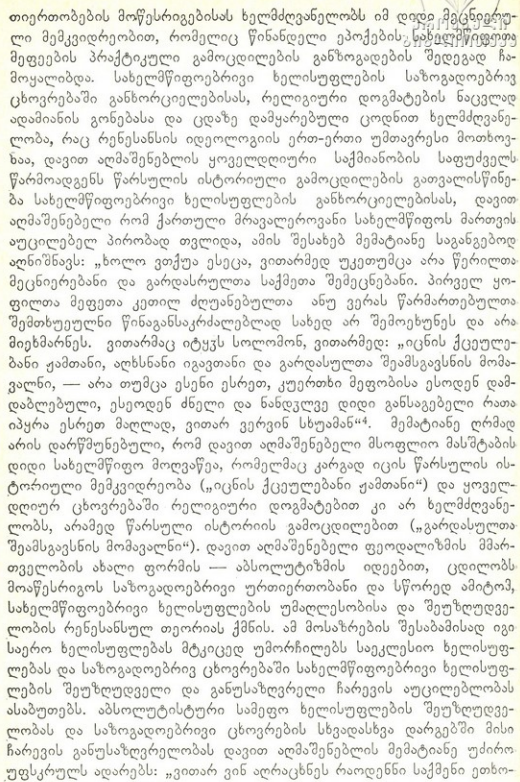 თიერთობების მოწესრიგებისას ხელმძღვანელობს იმ დიდი მეცნიერუ-
ლი მემკვიდრეობით, რომელიც წინანდელი ეპოქების სახელმწიფოთა
მეფეების პრაქტიკული გამოცდილების განზოგადების შედეგად ჩა-
მოყალიბდა. სახელმწიფოებრივი ხელისუფლების საზოგადოებრივ
ცხოვრებაში განხორციელებისას, რელიგიური დოგმატების ნაცვლად
ადამიანის გონებასა და ცდაზე დამყარებული ცოდნით ხელმძღვანე-
ლობა, რაც რენესანსის იდეოლოგიის ერთ-ერთი უმთავრესი მოთხოვ-
ნაა, დავით აღმაშენებლის ყოველდღიური საქმიანობის საფუძველს
წარმოადგენს წარსულის ისტორიული გამოცდილების გათვალისწინე-
ბა სახელმწიფოებრივი ხელისუფლების განხორციელებისას, დავით
აღმაშენებელი რომ ქართული მრავალეროვანი სახელმწიფოს მართვის
აუცილებელ პირობად თვლიდა, ამის შესახებ მემატიანე საგანგებოდ
აღნიშნავს: „ხოლო ვთქუა ესეცა, ვითარმედ უკეთუმცა არა წერილთა
მეცნიერებანი და გარდასრულთა საქმეთა შემეცნებანი. პირველ ყო-
ფილთა მეფეთა კეთილ ძღუანებულთა ანუ ვერას წარმართებულთა
შემთხუეულნი წინაგანსაკრძალებლად სახედ არ შემოეხუნეს და არა
მიეხმარნეს. ვითარმაც იტყჳს სოლომონ, ვითარმედ: „იცნის ქცეულე-
ბანი ჟამთანი, აღხსნანი იგავთანი და გარდასულთა შეამსგავსნის მომა-
ვალნი, — არა თუმცა ესენი ესრეთ, კუერთხი მეფობისა ესოდენ დამ-
დაბლებული, ესეოდენ ძნელი და ნანდჳლვე დიდი განსაგებელი რათა
იპყრა ესრეთ მაღლად, ვითარ ვერვინ სხუამან“⁴. მემატიანე ღრმად
არის დარწმუნებული, რომ დავით აღმაშენებელი მსოფლიო მასშტაბის
დიდი სახელმწიფო მოღვაწეა, რომელმაც კარგად იცის წარსულის ის-
ტორიული მემკვიდრეობა („იცნის ქცეულებანი ჟამთანი“) და ყოველ-
დღიურ ცხოვრებაში რელიგიური დოგმატებით კი არ ხელმძღვანე-
ლობს, არამედ წარსული ისტორიის გამოცდილებით („გარდასულთა
შეამსგავსნის მომავალნი“). დავით აღმაშენებელი ფეოდალიზმის მმარ-
თველობის ახალი ფორმის — აბსოლუტიზმის იდეებით, ცდილობს
მოაწესრიგოს საზოგადოებრივი ურთიერთობანი და სწორედ ამიტომ,
სახელმწიფოებრივი ხელისუფლების უმაღლესობისა და შეუზღუდვე-
ლობის რენესანსულ თეორიას ქმნის. ამ მოსაზრების შესაბამისად იგი
საერო ხელისუფლებას მტკიცედ უმორჩილებს საეკლესიო ხელისუფ-
ლებას და საზოგადოებრივ ცხოვრებაში სახელმწიფოებრივი ხელისუფ-
ლების შეუზღუდველი და განუსაზღვრელი ჩარევის აუცილებლობას
ასაბუთებს. აბსოლუტისტური სამეფო ხელისუფლების შეუზღუდვე-
ლობას და საზოგადოებრივი ცხოვრების სხვადასხვა დარგებში მისი
ჩარევის განუსაზღვრელობას დავით აღმაშენებლის მემატიანე უძირო
უფსკრულს ადარებს: „ვითარ ვინ აღრაცხნეს რაოდენნი საქმენი ეთხო-